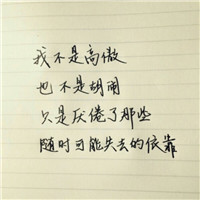 我不是高傲
也不是胡闹
只是厌倦了那些
随时可能失去的依靠